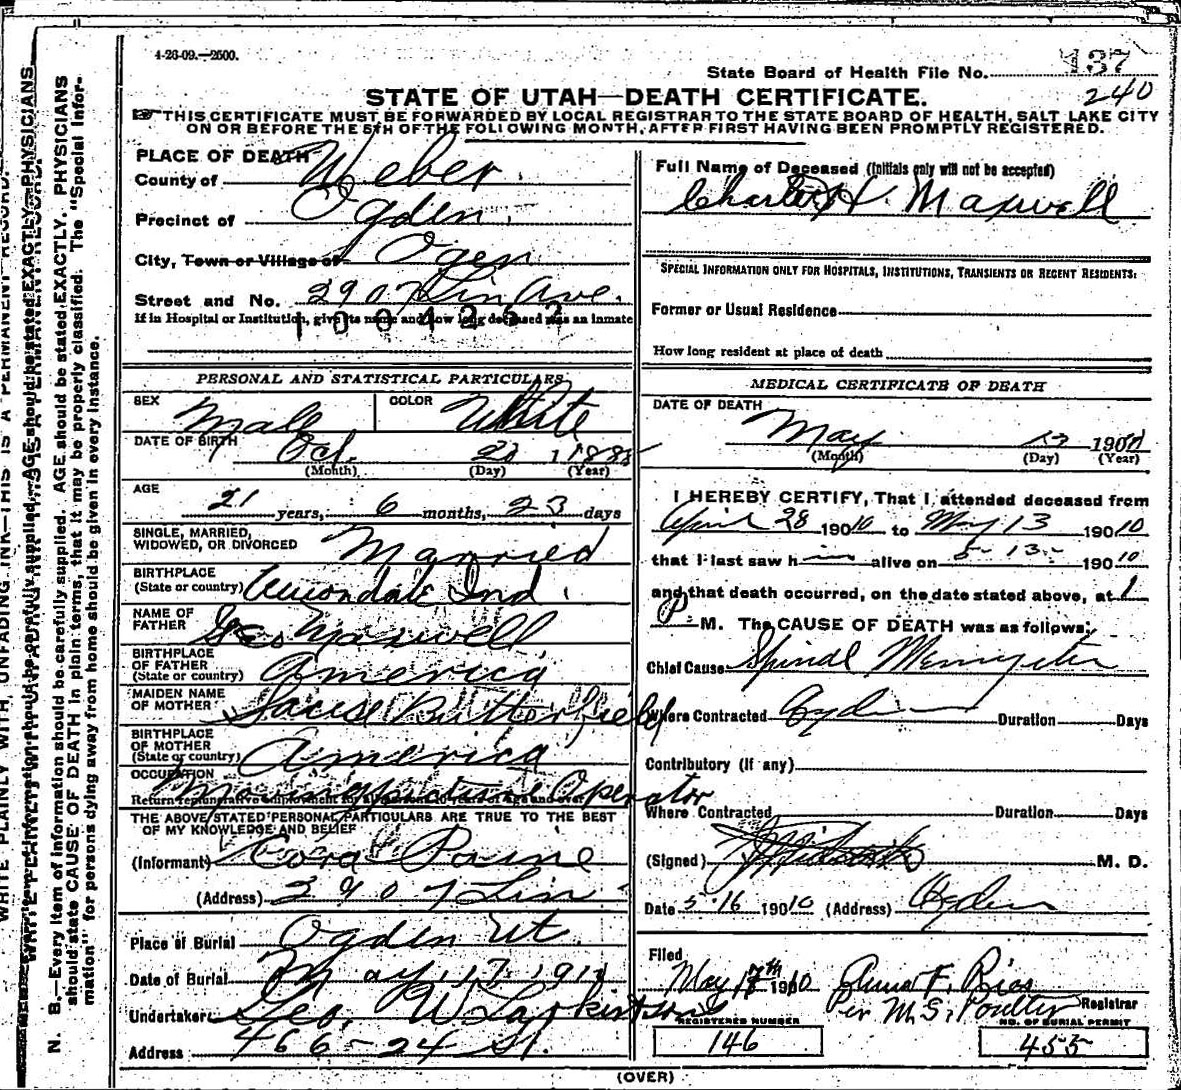 4-26-09.—2500.
137
State Board of Health File No.
240
STATE OF UTAH—DEATH CERTIFICATE.
☞THIS CERTIFICATE MUST BE FORWARDED BY LOCAL REGISTRAR TO THE STATE BOARD OF HEALTH, SALT LAKE CITY
ON OR BEFORE THE 5TH OF THE FOLLOWING MONTH, AFTER FIRST HAVING BEEN PROMPTLY REGISTERED.
PLACE OF DEATH
County of Weber
Precinct of Ogden
City, Town or Village of Ogen
Street and No. 2907 Lin Ave.
If in Hospital or Institution, give its name and how long deceased was an inmate
1004267
PERSONAL AND STATISTICAL PARTICULARS
SEX Male COLOR White
DATE OF BIRTH Oct. 20 1888
(Month) (Day) (Year)
AGE
21 years, 6 months, 23 days
SINGLE, MARRIED,
WIDOWED, OR DIVORCED Married
BIRTHPLACE
(State or country) Ind.
NAME OF
FATHER Geo Maxwell
BIRTHPLACE
OF FATHER
(State or country) America
MAIDEN NAME
OF MOTHER Butterfield
BIRTHPLACE
OF MOTHER
(State or country) America
OCCUPATION
Operator
Return remunerative employment for all persons 10 years of Age and over
THE ABOVE STATED PERSONAL PARTICULARS ARE TRUE TO THE BEST
OF MY KNOWLEDGE AND BELIEF
(Informant) Cora Paine
(Address) 2907 Lin
Place of Burial Ogden Ut.
Date of Burial May 17, 1910
Undertaker Geo. W Larkin & Sons
Address 466-24 St.
Full Name of Deceased (Initials only will not be accepted)
Charles H. Maxwell
SPECIAL INFORMATION ONLY FOR HOSPITALS, INSTITUTIONS, TRANSIENTS OR RECENT RESIDENTS:
Former or Usual Residence
How long resident at place of death
MEDICAL CERTIFICATE OF DEATH
DATE OF DEATH
May 13 1910
(Month) (Day) (Year)
I HEREBY CERTIFY, That I attended deceased from
April 28 19010 to May 13 19010
that I last saw him alive on 5-13- 19010
and that death occurred, on the date stated above, at 1
P M. The CAUSE OF DEATH was as follows:
Chief Cause Spinal
Where Contracted Ogden Duration Days
Contributory (If any)
Where Contracted Duration Days
(Signed) M. D.
Date 5-16 19010 (Address) Ogden
Filed
May 17th 1910 F. Rias
Per M. S. Poulter Registrar
REGISTERED NUMBER
146
NO. OF BURIAL PERMIT
455
(OVER)
WRITE PLAINLY WITH UNFADING INK—THIS IS A PERMANENT RECORD.
N. B.—Every item of information should be carefully supplied. AGE should be stated EXACTLY. PHYSICIANS
should state CAUSE OF DEATH in plain terms, that it may be properly classified. The "Special Infor-
mation" for persons dying away from home should be given in every instance.